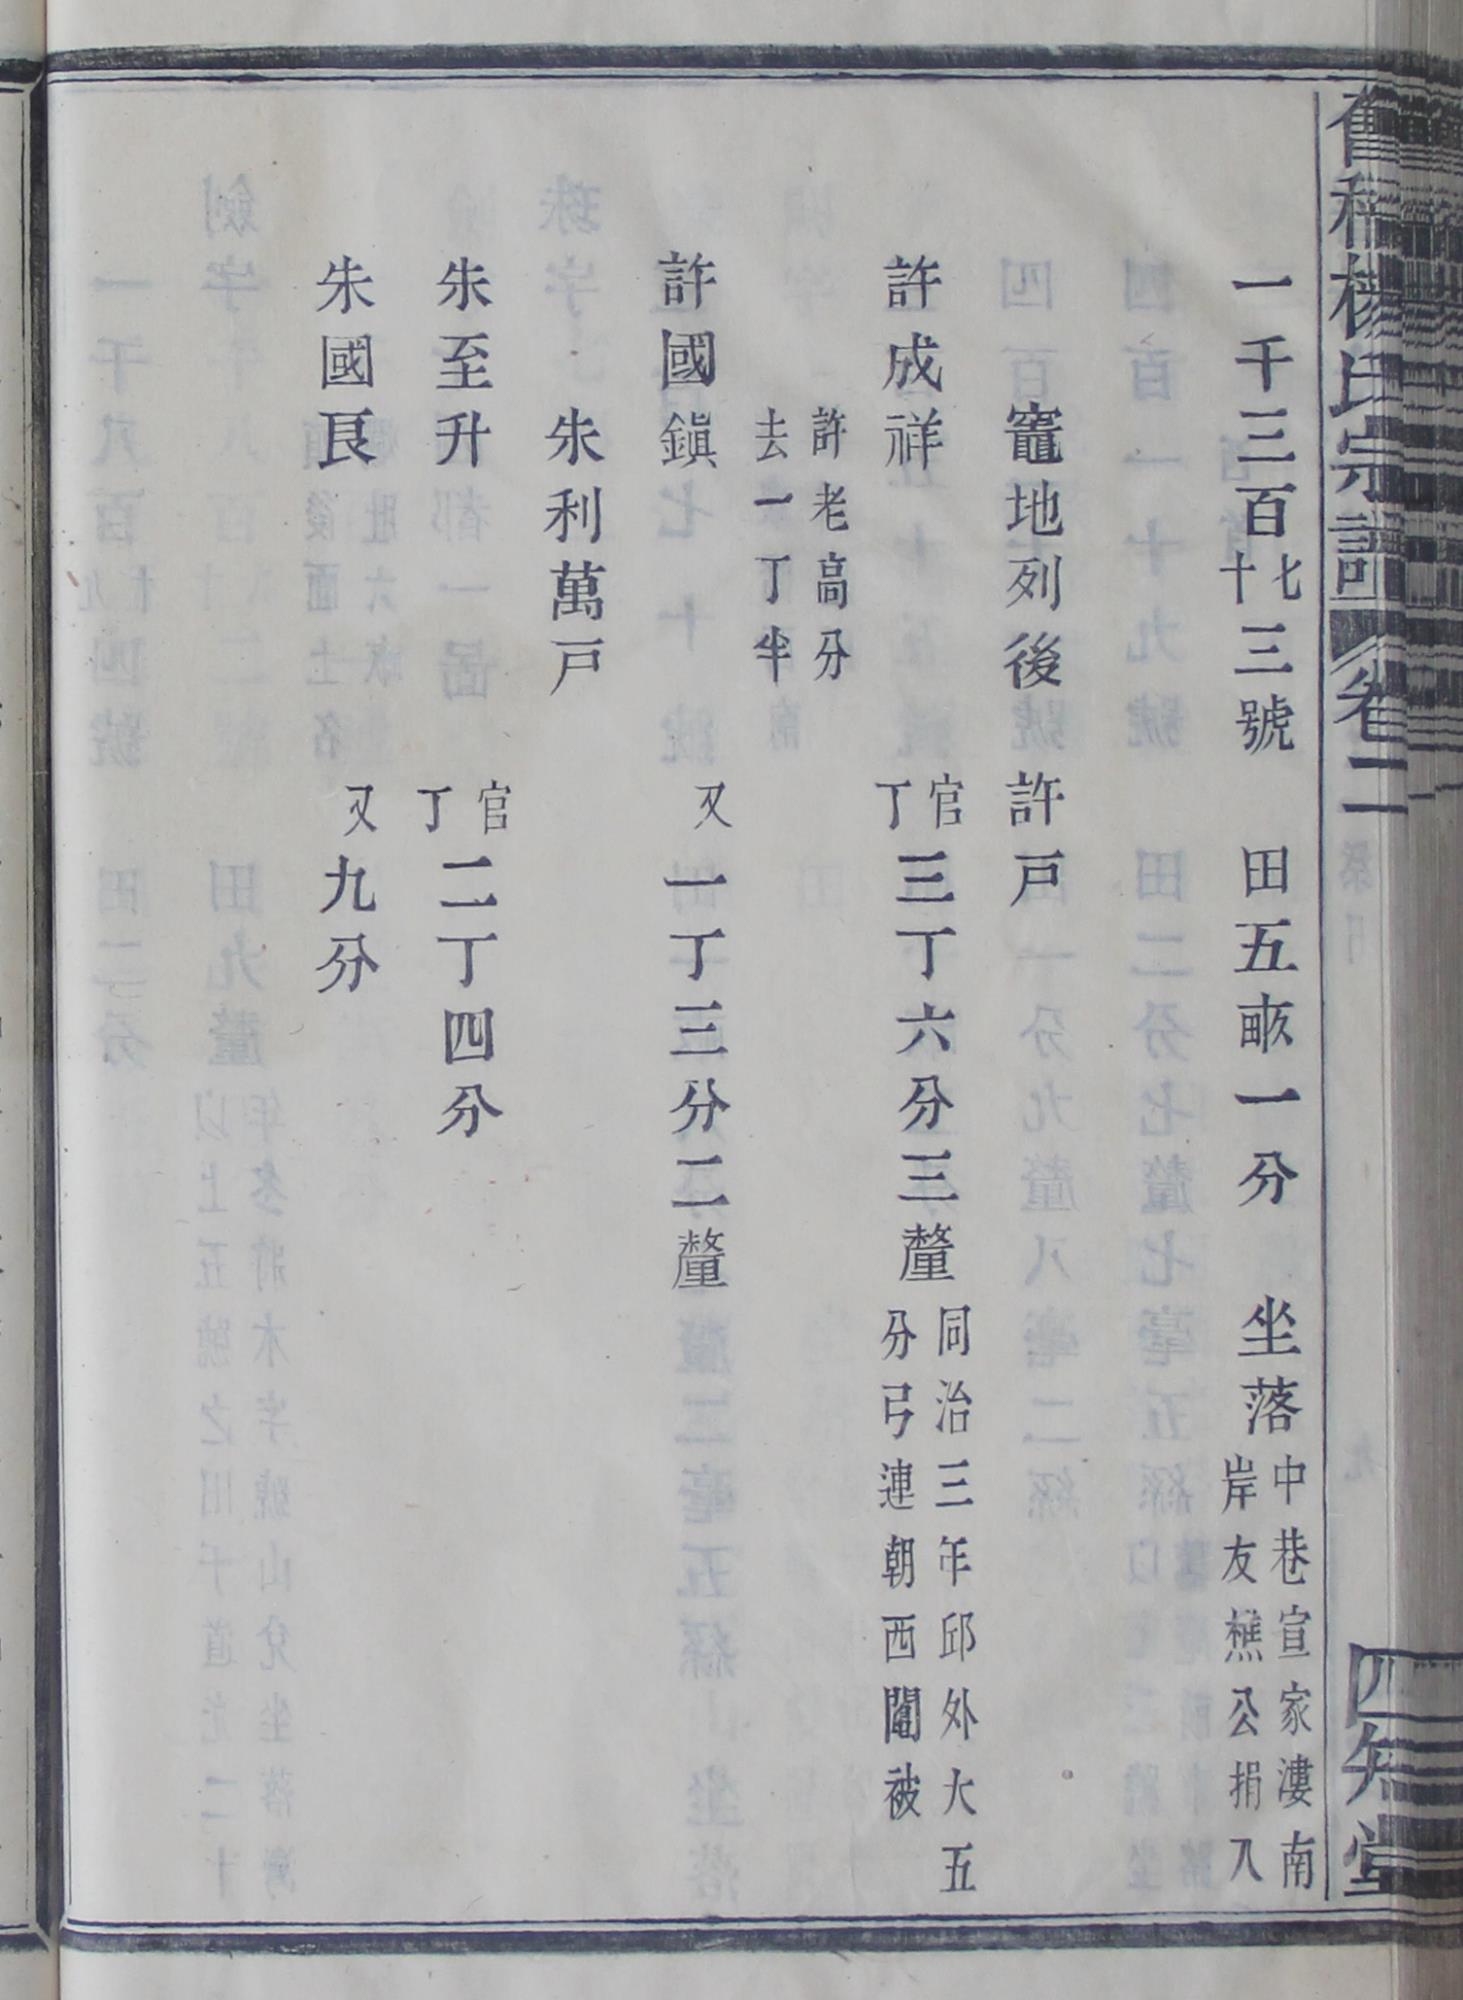 楊氏宗譜 卷二 四知堂
一千三百七十三號 田五畝一分 坐落中巷宣家漊南岸友樵公捐入
竈地列後 許戶
許成祥 官丁三丁六分三釐 同治三年邱外大五分弓連朝西閶被
許老高分去一丁半
許國鎭 又一丁三分二釐
朱利萬戶
朱至升 官丁二丁四分
朱國良 又九分